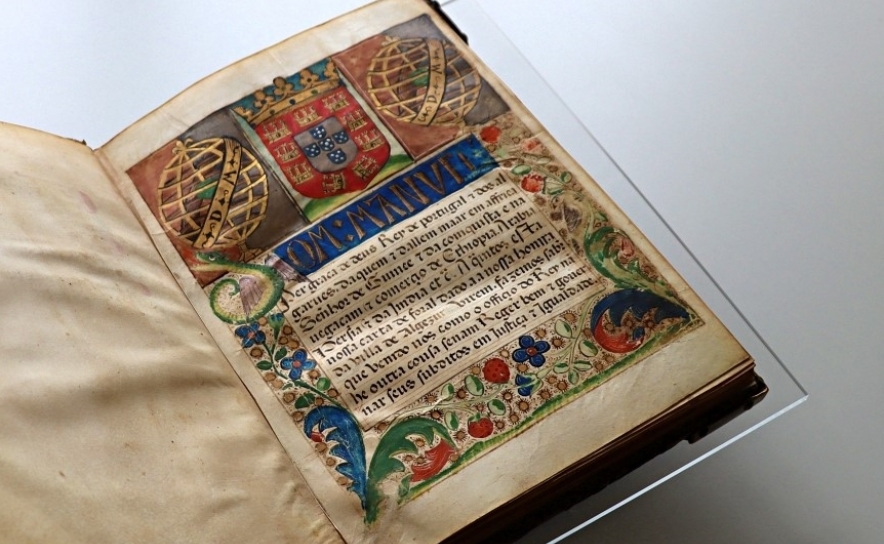 DOM: MANVEL
Per graça de deus Rey de portugal ⁊ dos al
garues, daquem ⁊ dallem maar em affrica
Senhor de Guinee ⁊ da comquista e na
uegaçam ⁊ comerçio de Ethiopia, Arabia
Persia ⁊ da India etc̃. A quãtos esta
nossa carta de foral dado aa nossa homrrada
da villa de algezur virem, fazemos saber
que beemdo nos como o offiçio do Rey nã
he outra cousa senam Reger bem ⁊ gouer
nar seus subditos em Justiça ⁊ Igualdade